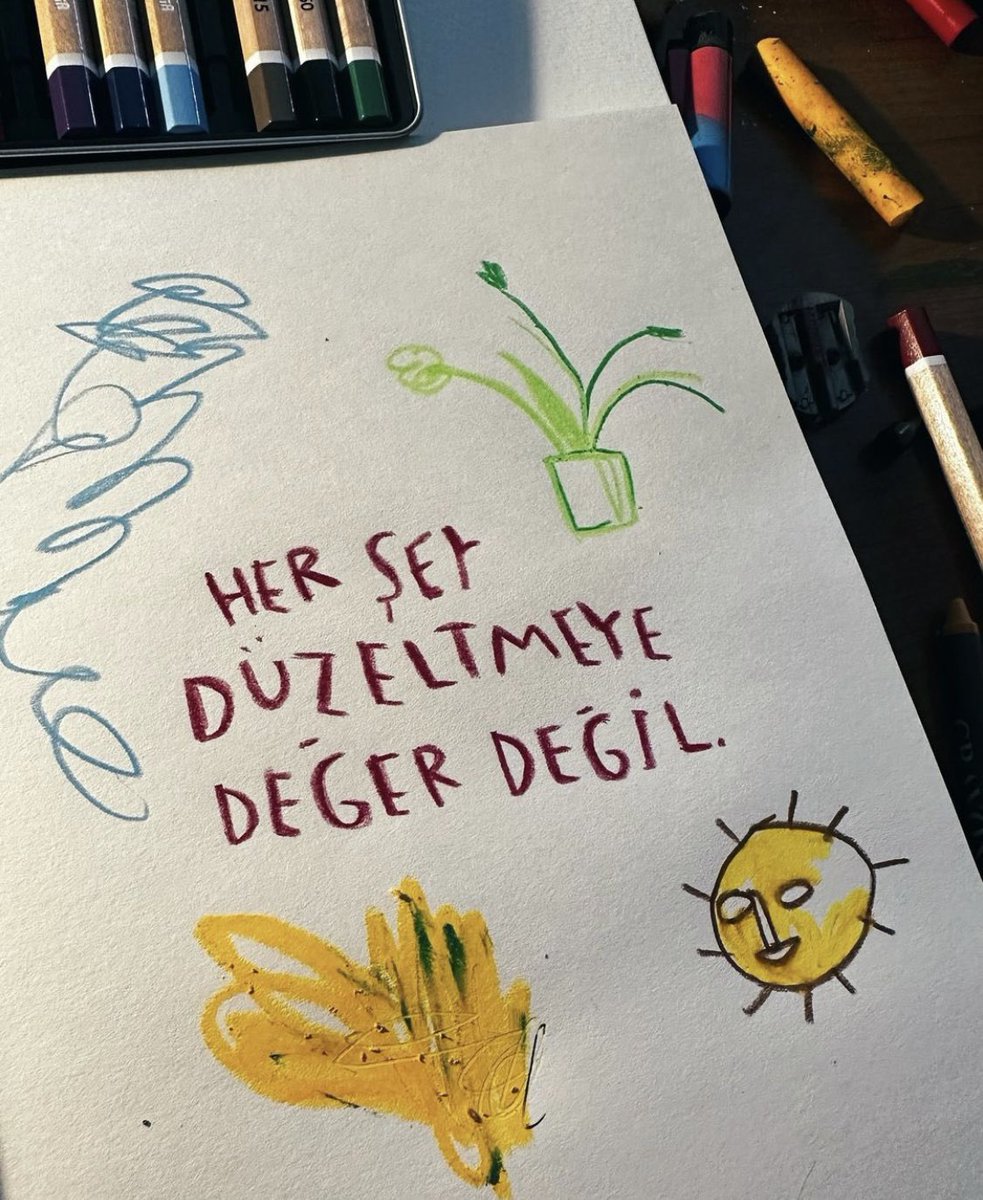 15
HER ŞEY
DÜZELTMEYE
DEĞER DEĞİL.